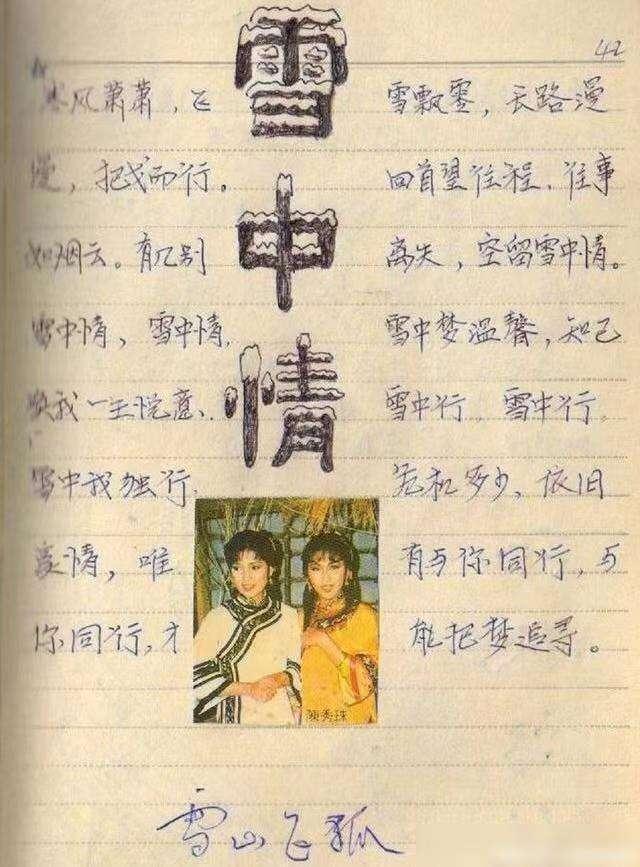 42
雪中情
寒风萧萧，飞雪飘零，长路漫
漫，把戈而行。回首望往程，往事
如烟云。有几别离失，空留雪中情。
雪中情，雪中情，雪中梦温馨，知己
我一生悦意、雪中行，雪中行，
雪中我独行，危机多少，依旧
豪情，唯有与你同行，与
你同行，才能把梦追寻。
陳秀珠
雪山飞狐